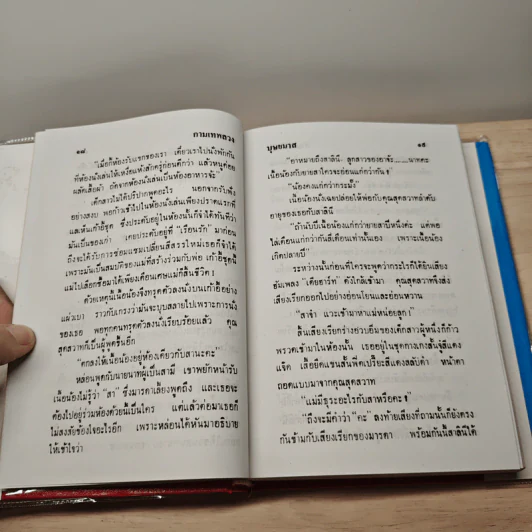 ๑๘ กามเทพลวง
"เมื่อกี้ห้องรับแขกของเรา เดี๋ยวเราไปนั่งพักกัน
ที่ห้องนั่งเล่นให้เหงื่อแห้งสักครู่ก่อนดีกว่า แล้วหนูค่อย
ผลัดเสื้อผ้า ถัดจากห้องนั่งเล่นเป็นห้องอาหารจ้ะ"
เด็กสาวไม่ได้ปริปากพูดอะไร นอกจากรับฟัง
อย่างสงบ พอก้าวเข้าไปในห้องนั่งเล่นเพียงปราดแรกที่
และเห็นเก้าอี้ชุด ซึ่งประดับอยู่ในห้องนั้นก็จำได้ทันทีว่า
มันเป็นของเก่า เคยประดับอยู่ที่ "เรือนรัก" มาก่อน
ถึงจะได้รับการซ่อมแซมเปลี่ยนสีสรรใหม่เธอก็จำได้
เพราะมันเป็นสมบัติของแม่ที่สร้างร่วมกับพ่อ เก้าอี้ชุดนี้
แม่ไปเลือกซื้อมาได้เพียงเดือนเศษแม่ก็สิ้นชีวิต !
ด้วยเหตุนี้เนื้อน้องจึงทรุดตัวลงนั่งบนเก้าอี้อย่าง
แผ่วเบา ราวกับเกรงว่ามันจะบุบสลายไปเพราะการนั่ง
ของเธอ พอทุกคนทรุดตัวลงนั่งเรียบร้อยแล้ว คุณ
สุดสวาทก็เป็นผู้พูดขึ้นอีก
"ตกลงให้เนื้อน้องอยู่ห้องเดียวกับสานะคะ"
หล่อนพูดกับนายนาทผู้เป็นสามี เขาพยักหน้ารับ
เนื้อน้องไม่รู้ว่า "สา" ซึ่งมารดาเลี้ยงพูดถึง และเธอจะ
ต้องไปอยู่ร่วมห้องด้วยนั้นเป็นใคร แต่แล้วต่อมาเธอก็
ไม่สงสัยข้องใจอะไรอีก เพราะหล่อนได้หันมาอธิบาย
ให้เข้าใจว่า
บุษยมาส ๑๙
"อาหมายถึงสาลินี ลูกสาวของอาจ้ะ......นาทคะ
เนื้อน้องกับยายสาใครจะอ่อนแก่กว่ากัน !"
"น้องคงแก่กว่ากระมัง"
เนื้อน้องนั่งเฉยปล่อยให้พ่อกับคุณสุดสวาทลำดับ
อายุของเธอกับสาลินี
"ถ้านับปีเนื้อน้องแก่กว่ายายสาปีหนึ่งค่ะ แต่พอ
ไล่เดือนแก่กว่ากันสี่เดือนเท่านั้นเอง เพราะเนื้อน้อง
เกิดปลายปี"
ระหว่างนั้นก่อนที่ใครจะพูดว่ากระไรก็ได้ยินเสียง
ฮัมเพลง "เดียฮาร์ท" ดังใกล้เข้ามา คุณสุดสวาทจึงส่ง
เสียงเรียกออกไปอย่างอ่อนโยนและอ่อนหวาน
"สาจ๋า แวะเข้ามาหาแม่หน่อยลูก!"
สิ้นเสียงเรียกร่างอ้วบอิ่มของเด็กสาวผู้หนึ่งก็ก้าว
พรวดเข้ามาในห้องนั้น เธออยู่ในชุดกางเกงสั้นจู๋สีแดง
แจ๊ด เสื้อยืดแขนสั้นพิดเปรี๊ยะสีแดงสลับดำ หน้าตา
ถอดแบบมาจากคุณสุดสวาท
"แม่มีธุระอะไรกับสาหรือคะ !"
"ถึงจะมีคำว่า "คะ" ลงท้ายเสียงที่ถามนั้นก็ยังตรง
กันข้ามกับเสียงเรียกของมารดา พร้อมกันนี้สาลินีได้